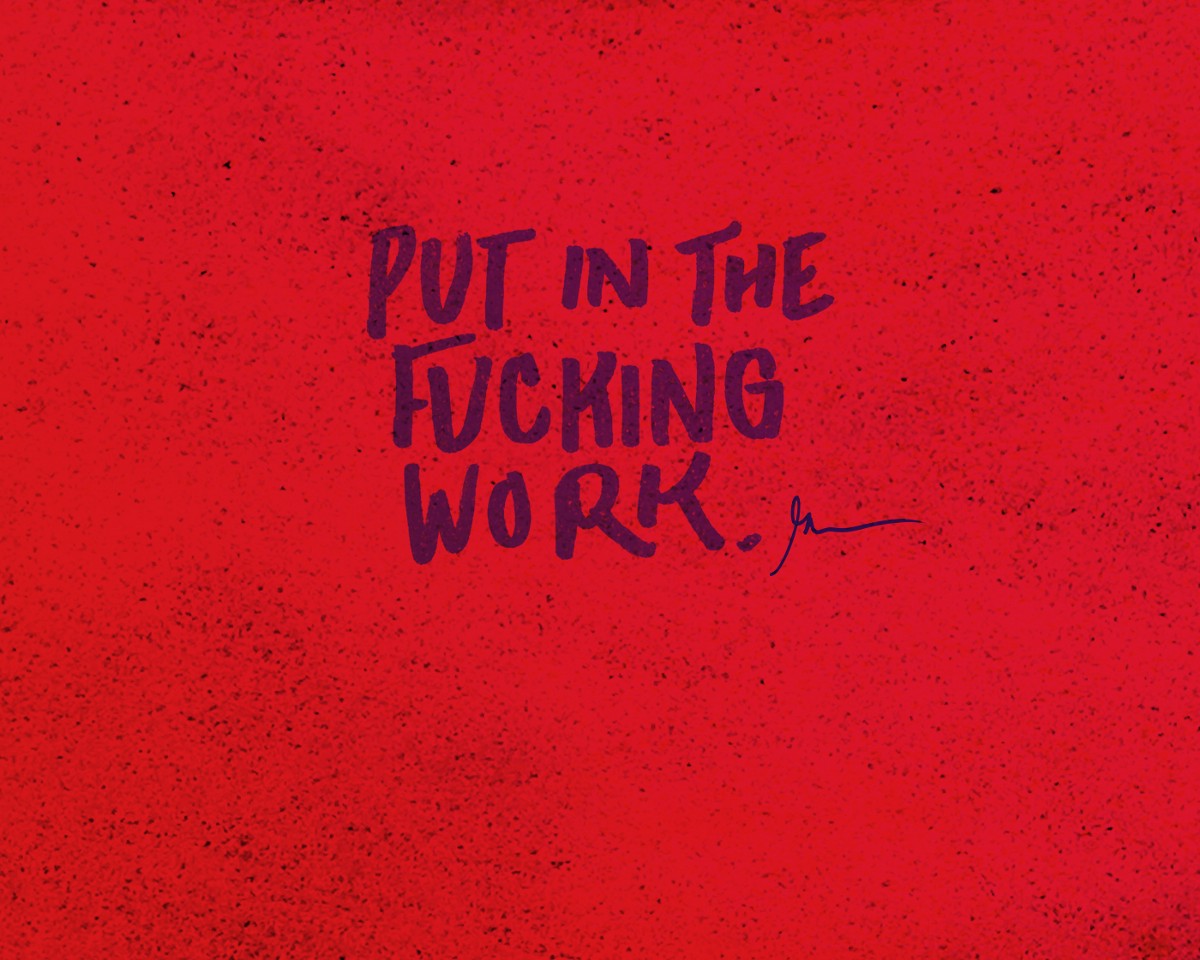 PUT IN THE
FUCKING
WORK.